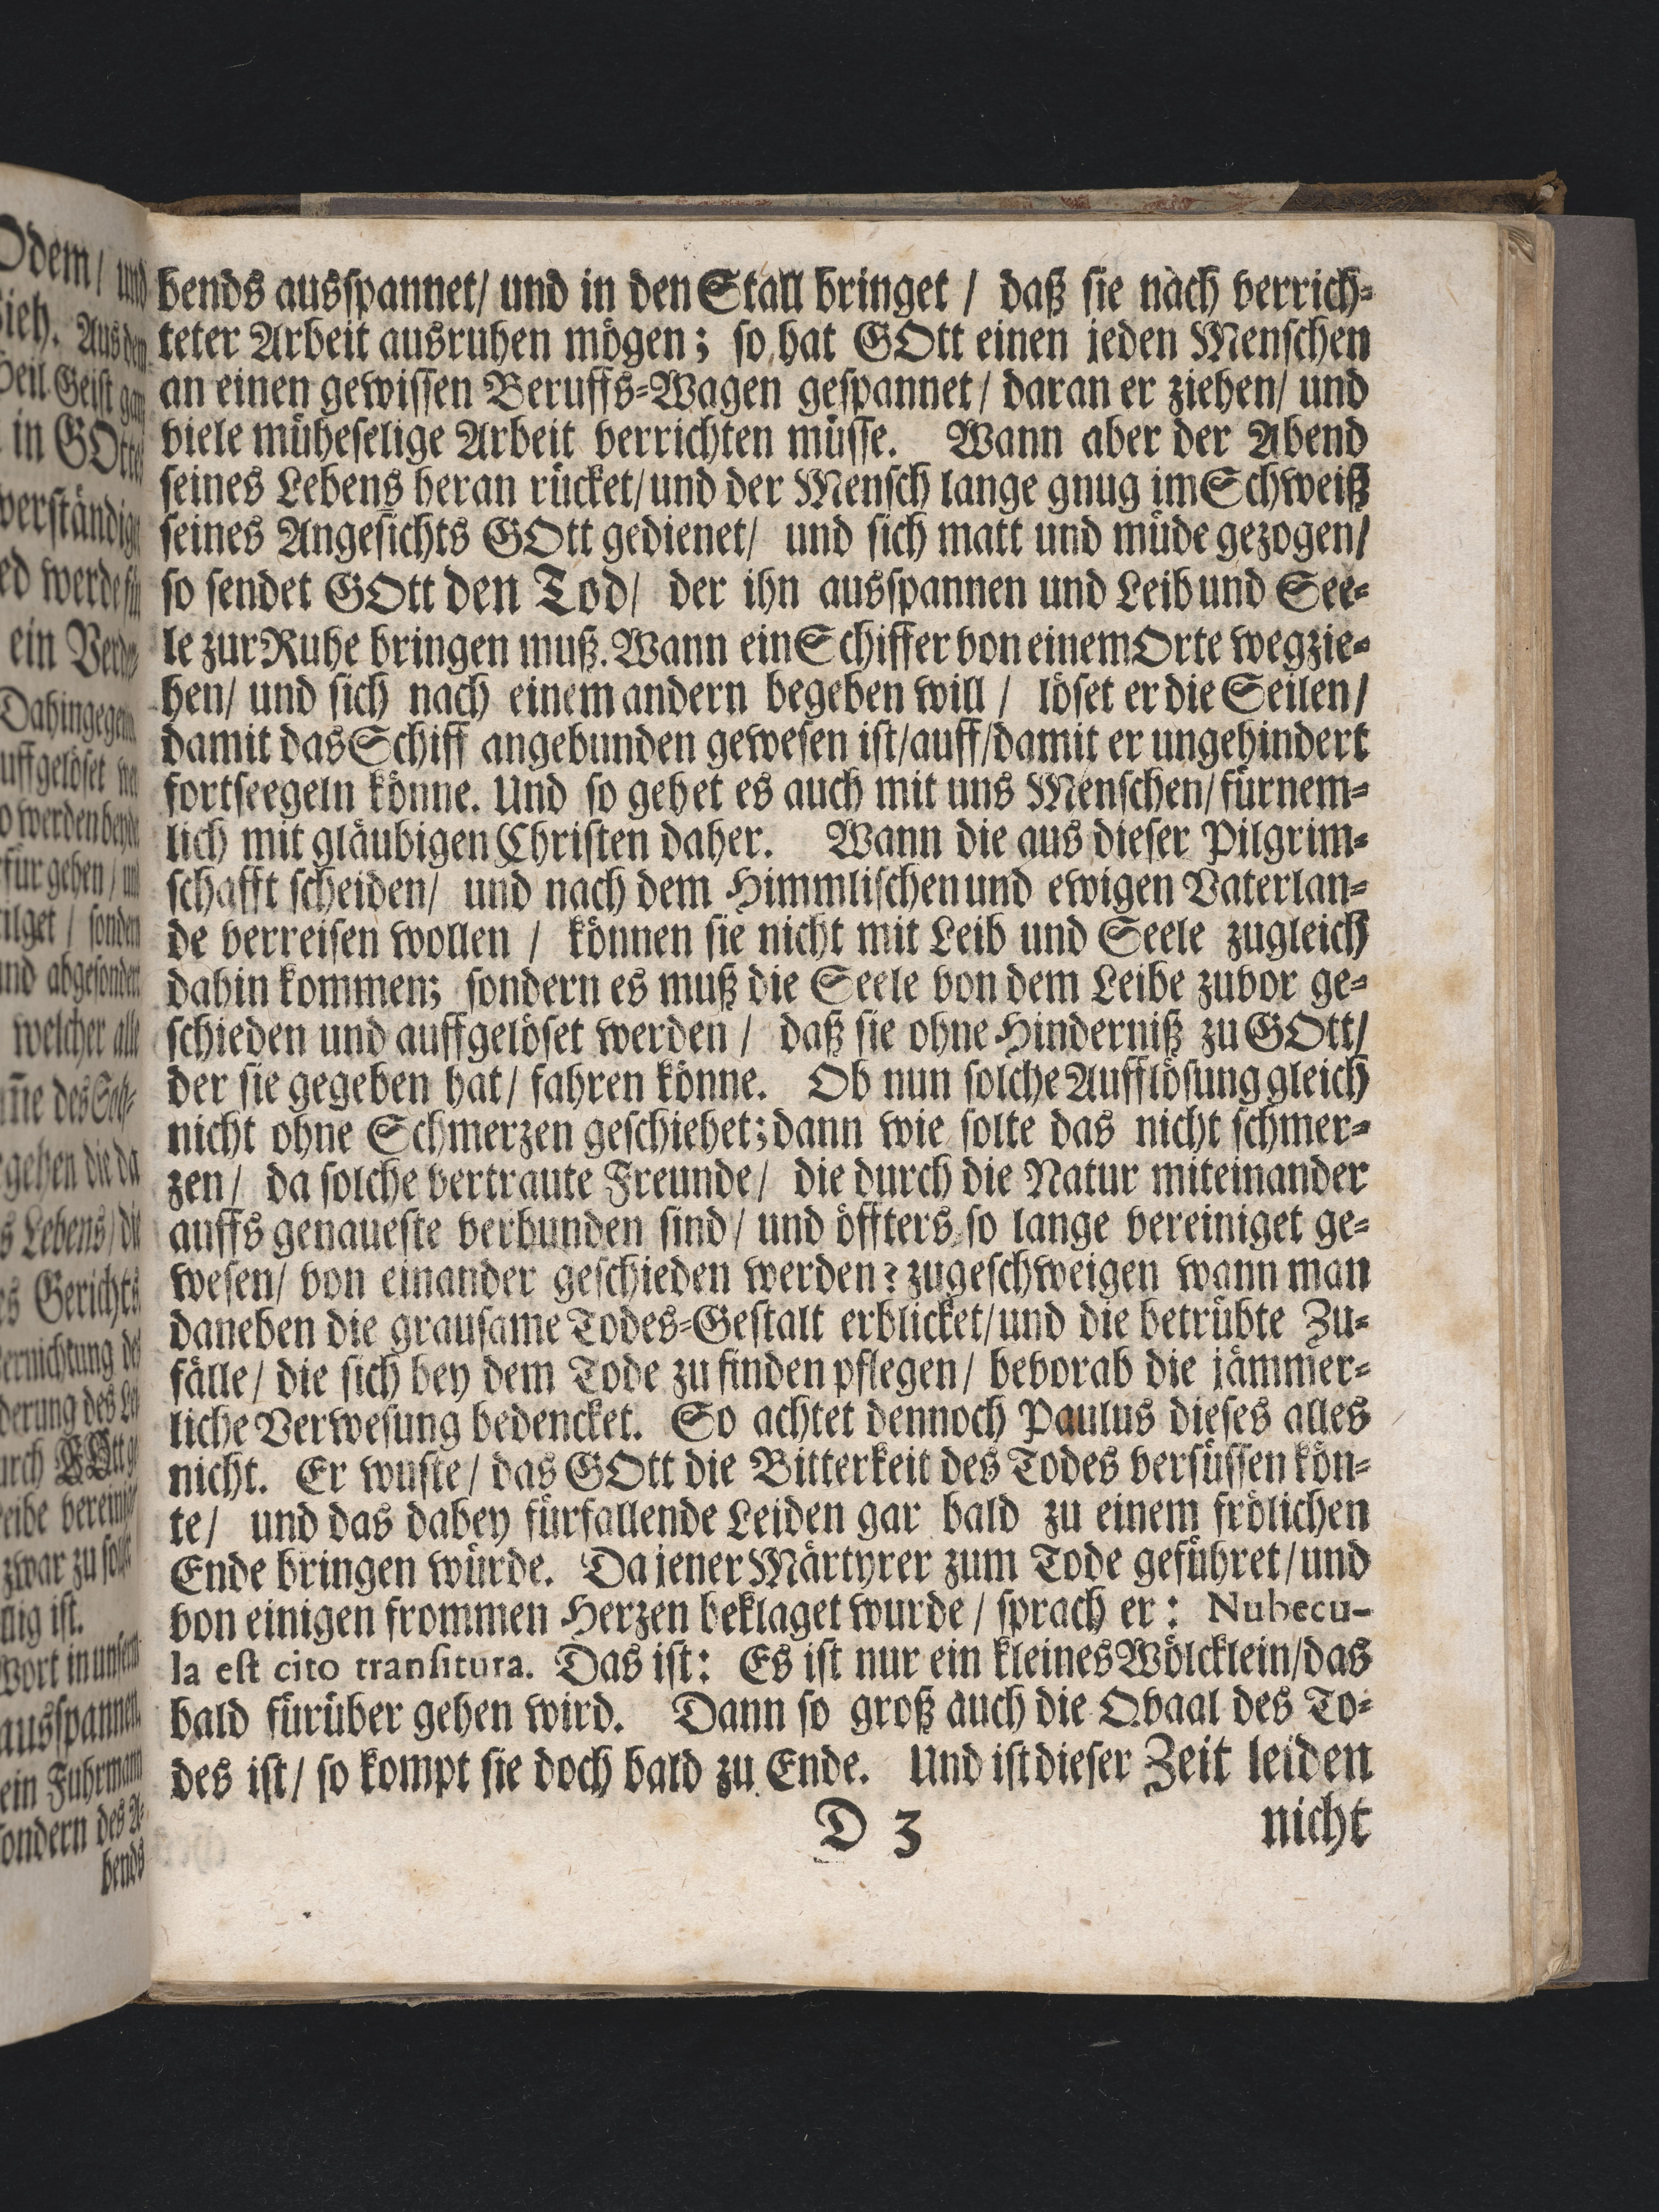 bends ausspannet/ und in den Stall bringet / daß sie nach verrich-
teter Arbeit ausruhen mögen; so hat GOtt einen jeden Menschen
an einen gewissen Beruffs-Wagen gespannet/ daran er ziehen/ und
viele müheselige Arbeit verrichten müsse. Wann aber der Abend
seines Lebens heran rücket/ und der Mensch lange gnug im Schweiß
seines Angesichts GOtt gedienet/ und sich matt und müde gezogen/
so sendet GOtt den Tod/ der ihn ausspannen und Leib und See-
le zur Ruhe bringen muß. Wann ein Schiffer von einem Orte wegzie-
hen/ und sich nach einem andern begeben will / löset er die Seilen/
damit das Schiff angebunden gewesen ist/auff/damit er ungehindert
fortseegeln könne. Und so gehet es auch mit uns Menschen/ fürnem-
lich mit gläubigen Christen daher. Wann die aus dieser Pilgrim-
schafft scheiden/ und nach dem Himmlischen und ewigen Vaterlan-
de verreisen wollen / können sie nicht mit Leib und Seele zugleich
dahin kommen; sondern es muß die Seele von dem Leibe zuvor ge-
schieden und auffgelöset werden / daß sie ohne Hinderniß zu GOtt/
der sie gegeben hat/ fahren könne. Ob nun solche Aufflösung gleich
nicht ohne Schmerzen geschiehet; dann wie solte das nicht schmer-
zen/ da solche vertraute Freunde/ die durch die Natur miteinander
auffs genaueste verbunden sind/ und öffters so lange vereiniget ge-
wesen/ von einander geschieden werden? zugeschweigen wann man
daneben die grausame Todes-Gestalt erblicket/und die betrübte Zu-
fälle/ die sich bey dem Tode zu finden pflegen/ bevorab die jämmer-
liche Verwesung bedencket. So achtet dennoch Paulus dieses alles
nicht. Er wuste/ das GOtt die Bitterkeit des Todes versüssen kön-
te/ und das dabey fürfallende Leiden gar bald zu einem frölichen
Ende bringen würde. Da jener Märtyrer zum Tode geführet/und
von einigen frommen Herzen beklaget wurde/ sprach er: Nubecu-
la est cito transitura. Das ist: Es ist nur ein kleines Wölcklein/das
bald fürüber gehen wird. Dann so groß auch die Qvaal des To-
des ist/ so kompt sie doch bald zu Ende. Und ist dieser Zeit leiden
D 3 nicht